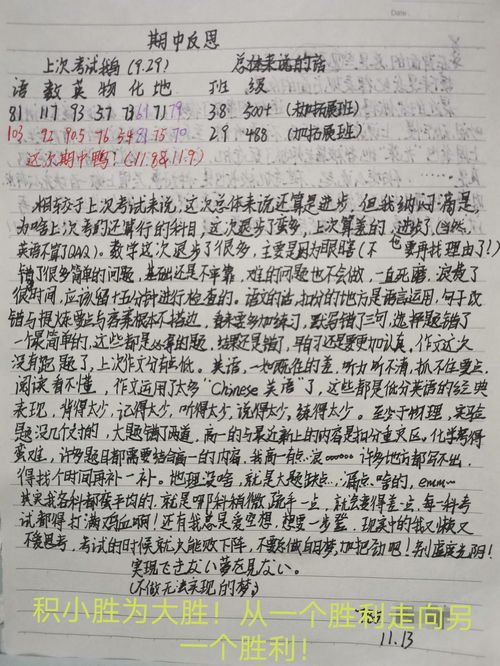 期中反思
上次考试鹅 (9.29) 总体来说的话
语 数 英 物 化 地 班 级
81 117 93 57 73 61 71 79 38 500+ (加拓展班)
103 92 90.5 76 54 81 75 70 29 488 (加拓展班)
这次期中鸭! (11.8&11.9)
相较于上次考试来说,这次总体来说还算是进步,但我纳闷滴是,
为啥上次考的还算行的科目,这次退步了蛮多,上次算差的,进步了(当然,
英语不算了QAQ)。数学这次退步了很多,主要是因为眼瞎(不也要再找理由了!)
错了很多简单的问题,基础还是不牢靠,难的问题也不会做,一直死磨,浪费了
很时间,应该留十五分钟进行检查的。语文的话,扣分的地方是语言运用,句子改
错与提炼要点与答案根本不搭边,看来要多加练习,默写错了三句,选择题错了
一个最简单的,这些都是必拿的题,结果还是错了,平时还是要更加认真。作文这次
没有跑题了,上次作文分有点低。英语,一如既往的差,听力听不清,抓不住要点,
阅读看不懂,作文运用了太多“Chinese 英语”了,这些都是低分英语的经典
表现,背得太少,记得太少,听得太少,说得太少,练得太少。至于物理,实验
题没几个对的,大题错了两道,高一的与最近新上的内容是扣分重灾区。化学考得
蛮难,许多题目都需要结合高一的内容,我高一有点浪……许多地方都写不出,
得找个时间再补一补。地理没啥,就是大题缺点,漏点啥的,emm~
其实我各科都蛮平均的,就是哪科稍微疏乎一点,就会变得差一点,每一科考
试都得打满鸡血啊!还有我总是爱空想,想要一步登,现实中的我又懒又
不爱思考,考试的时候就只能败下阵,不要总做白日梦,加把劲吧!别虚度光阴!
実現できない夢を見ない。
(不做无法实现的梦)
11.13
积小胜为大胜!从一个胜利走向另
一个胜利!